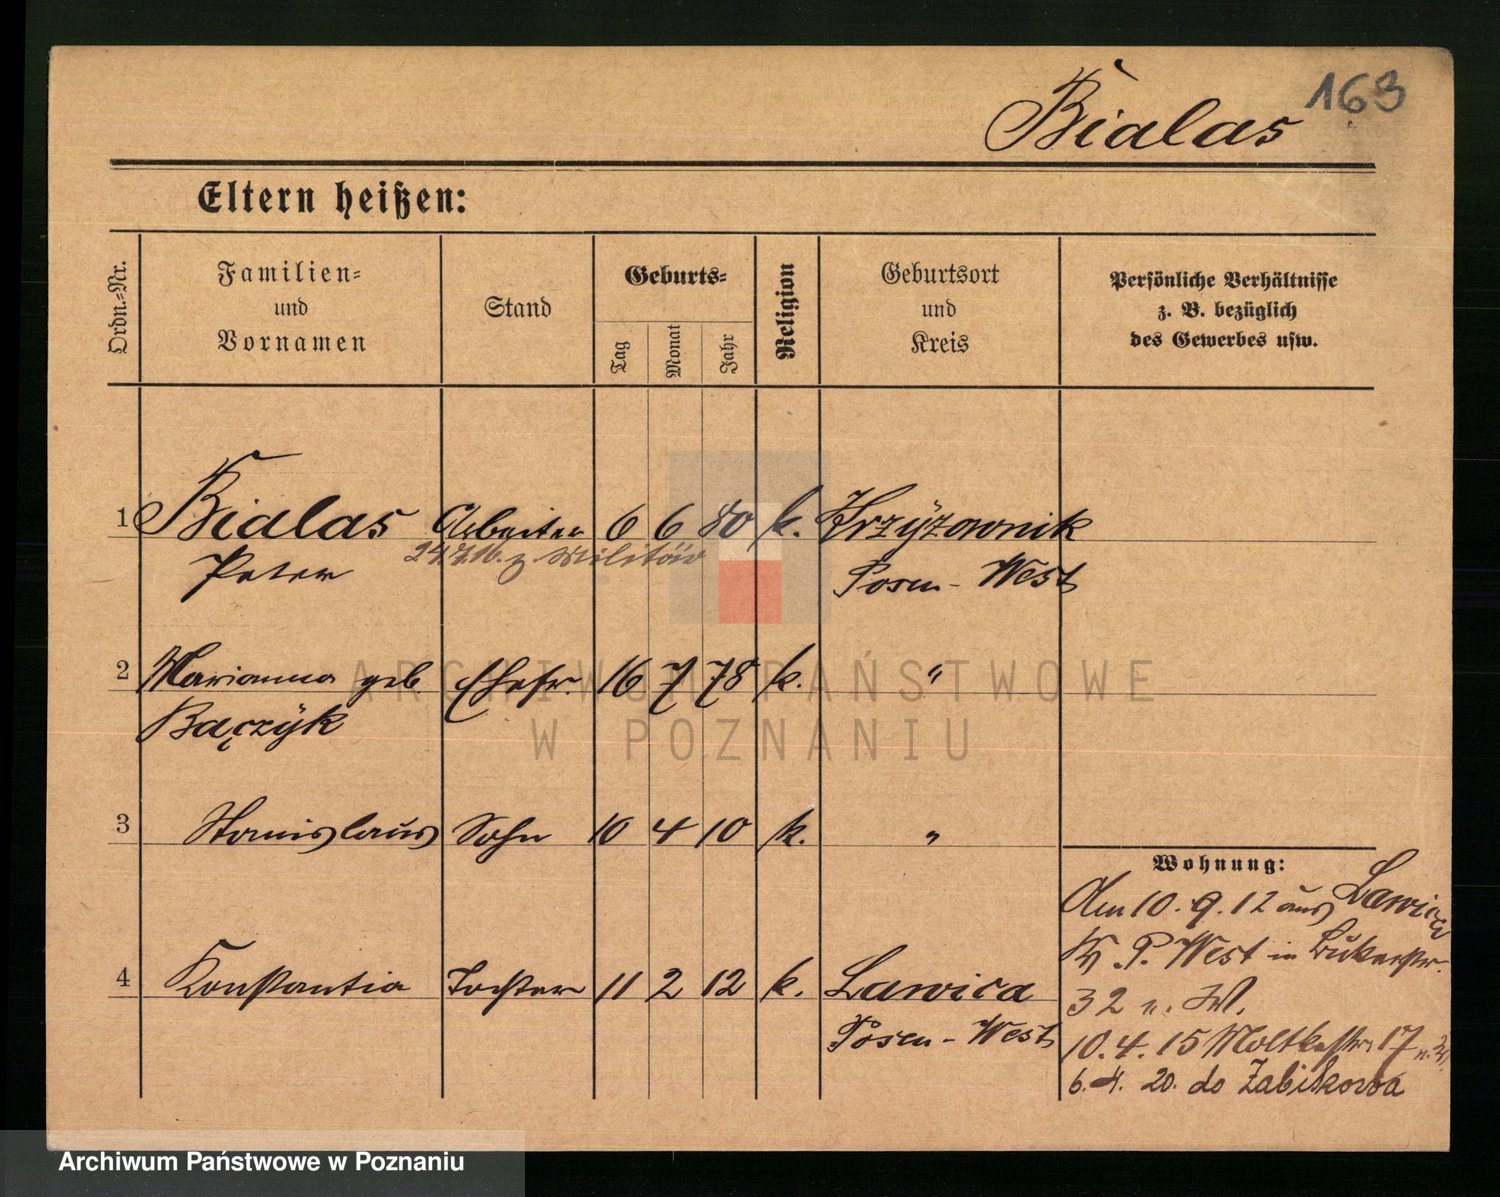 163
Bialas
Eltern heißen:
Ordn.=Nr.
Familien=
und
Vornamen
Stand
Geburts=
Tag
Monat
Jahr
Religion
Geburtsort
und
Kreis
Persönliche Verhältnisse
z. B. bezüglich
des Gewerbes usw.
1 Bialas Arbeiter 6 6 80 k. Krzyżownik
24.7.16. z Militär
Peter Posen - West
2 Marianna geb. Ehefr. 16 7 78 k. "
Bączÿk
3 Stanislaus Sohn 10 4 10 k. "
Wohnung:
Am 10.9.12 aus Lawica
Kr. P. West in Bukerstr.
32 n. W.
4 Konstantia Tochter 11 2 12 k. Lawica
Posen - West
10.4.15 Moltkestr. 17
6.4.20. do Żabikowa
ARCHIWUM PAŃSTWOWE
W POZNANIU
Archiwum Państwowe w Poznaniu